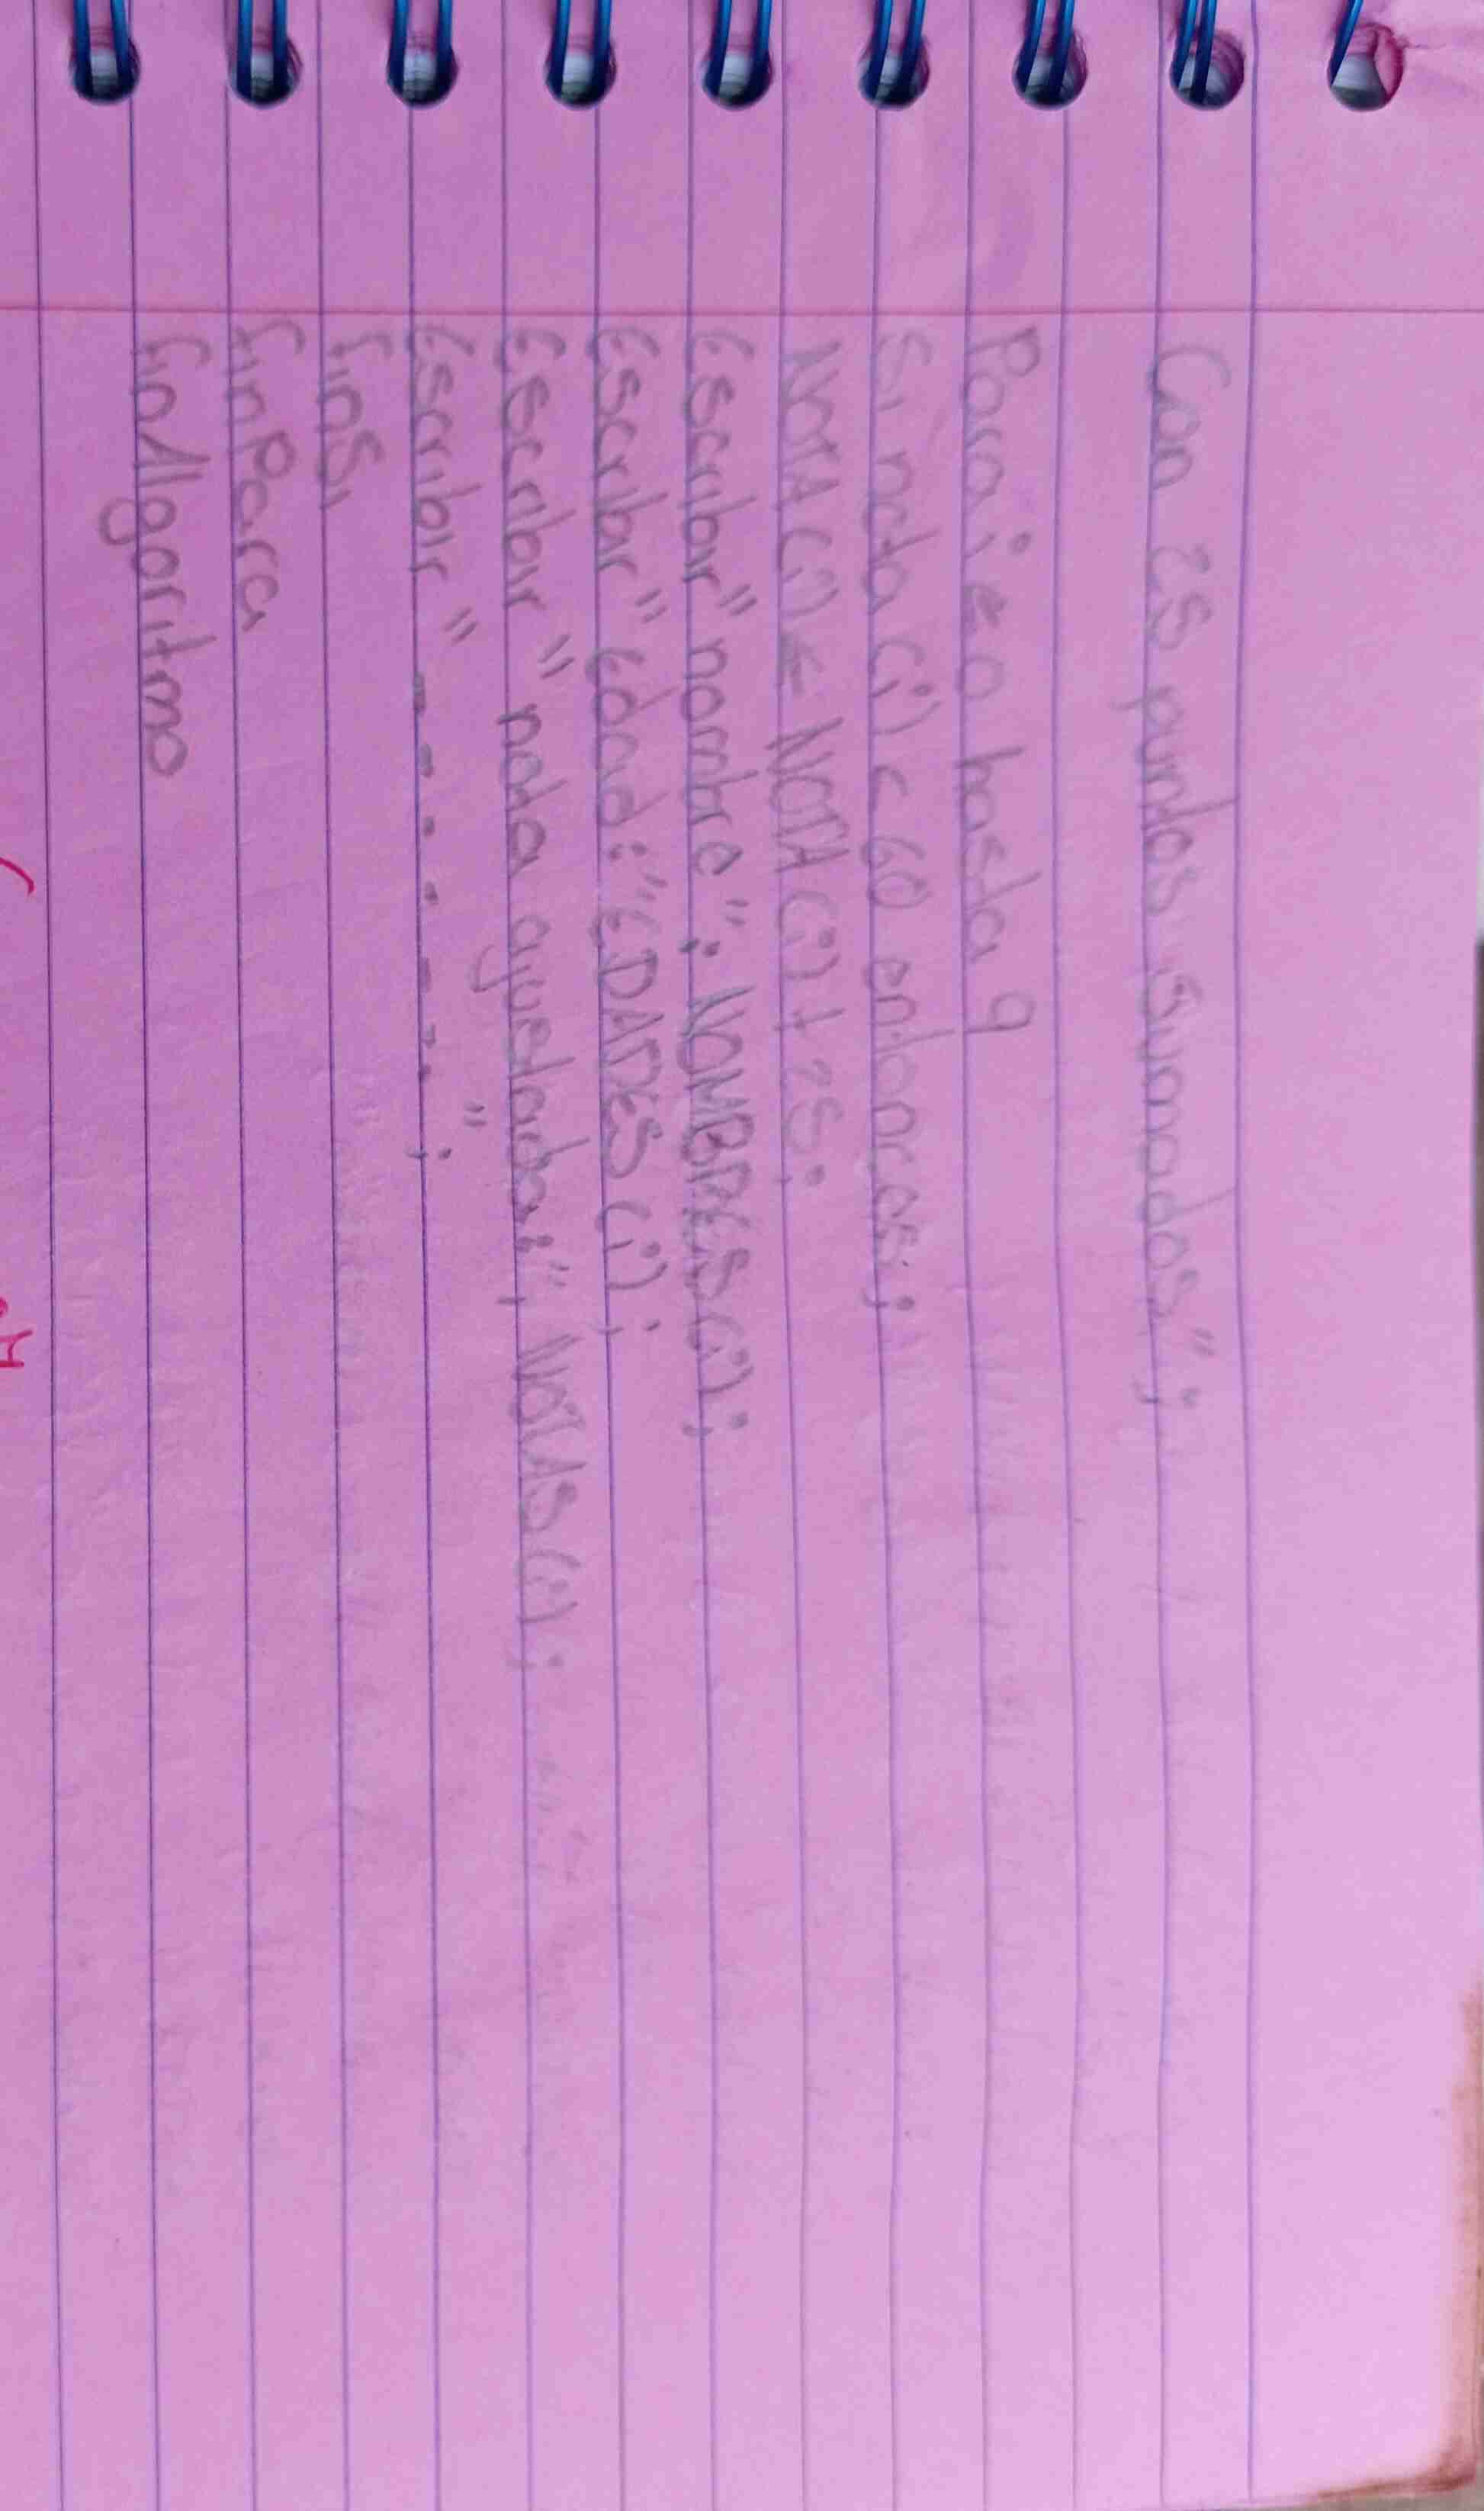 Con 25 puntos sumados";
Para i = 0 hasta 9
Si nota (i) < 60 entonces;
NOTA (i) = NOTA (i) + 25;
Escribir "nombre": NOMBRES (i);
Escribir "Edad:" EDADES (i);
Escribir "nota ajustada:", NOTAS (i);
Escribir "- - - - - - -";
FinSi
FinPara
FinAlgoritmo